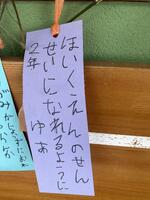 ほいくえんのせん
せいになれるように
2年
ゆあ